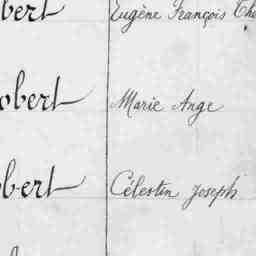 bert Eugène François
obert Marie Ange
obert Célestin Joseph